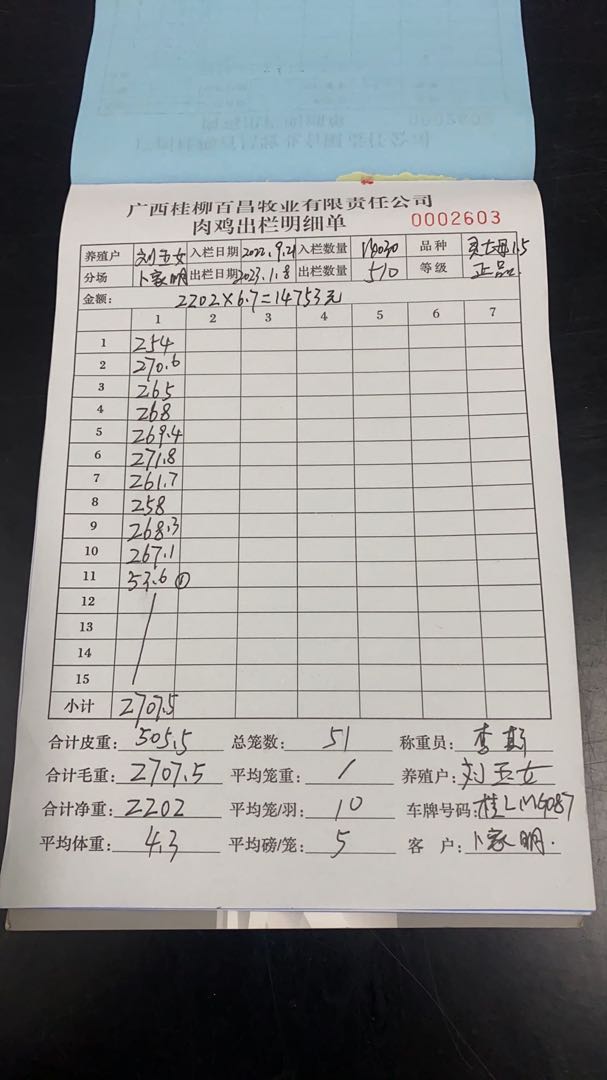 广西桂柳百昌牧业有限责任公司
肉鸡出栏明细单 0002603
养殖户 刘玉女 入栏日期 2022.9.21 入栏数量 品种
分场 卜家明 出栏日期 2023.1.8 出栏数量 510 等级 正品
金额: 2202×6.7=14753元
1 2 3 4 5 6 7
1 254
2 270.6
3 265
4 268
5 269.4
6 271.8
7 261.7
8 258
9 268.3
10 267.1
11 53.6 ①
12
13
14
15
小计 2707.5
合计皮重: 505.5 总笼数: 51 称重员: 李
合计毛重: 2707.5 平均笼重: / 养殖户: 刘玉女
合计净重: 2202 平均笼/羽: 10 车牌号码: 桂LMG087
平均体重: 4.3 平均磅/笼: 5 客户: 卜家明.